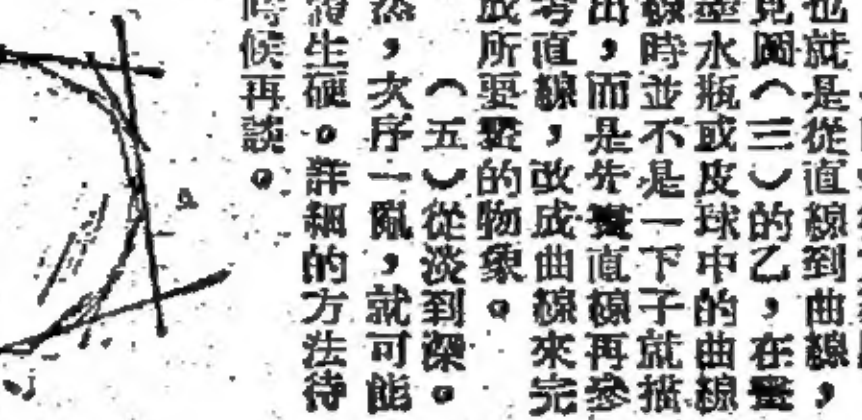 也就是從直線到曲線，
見圖（三）的乙，在畫
墨水瓶或皮球中的曲線
線時並不是一下子就描
出，而是先畫直線再參
考直線，改成曲線來完
成所要畫的物象。
（五）從淡到深。
然，次序一亂，就可能
生硬。詳細的方法待
時候再談。